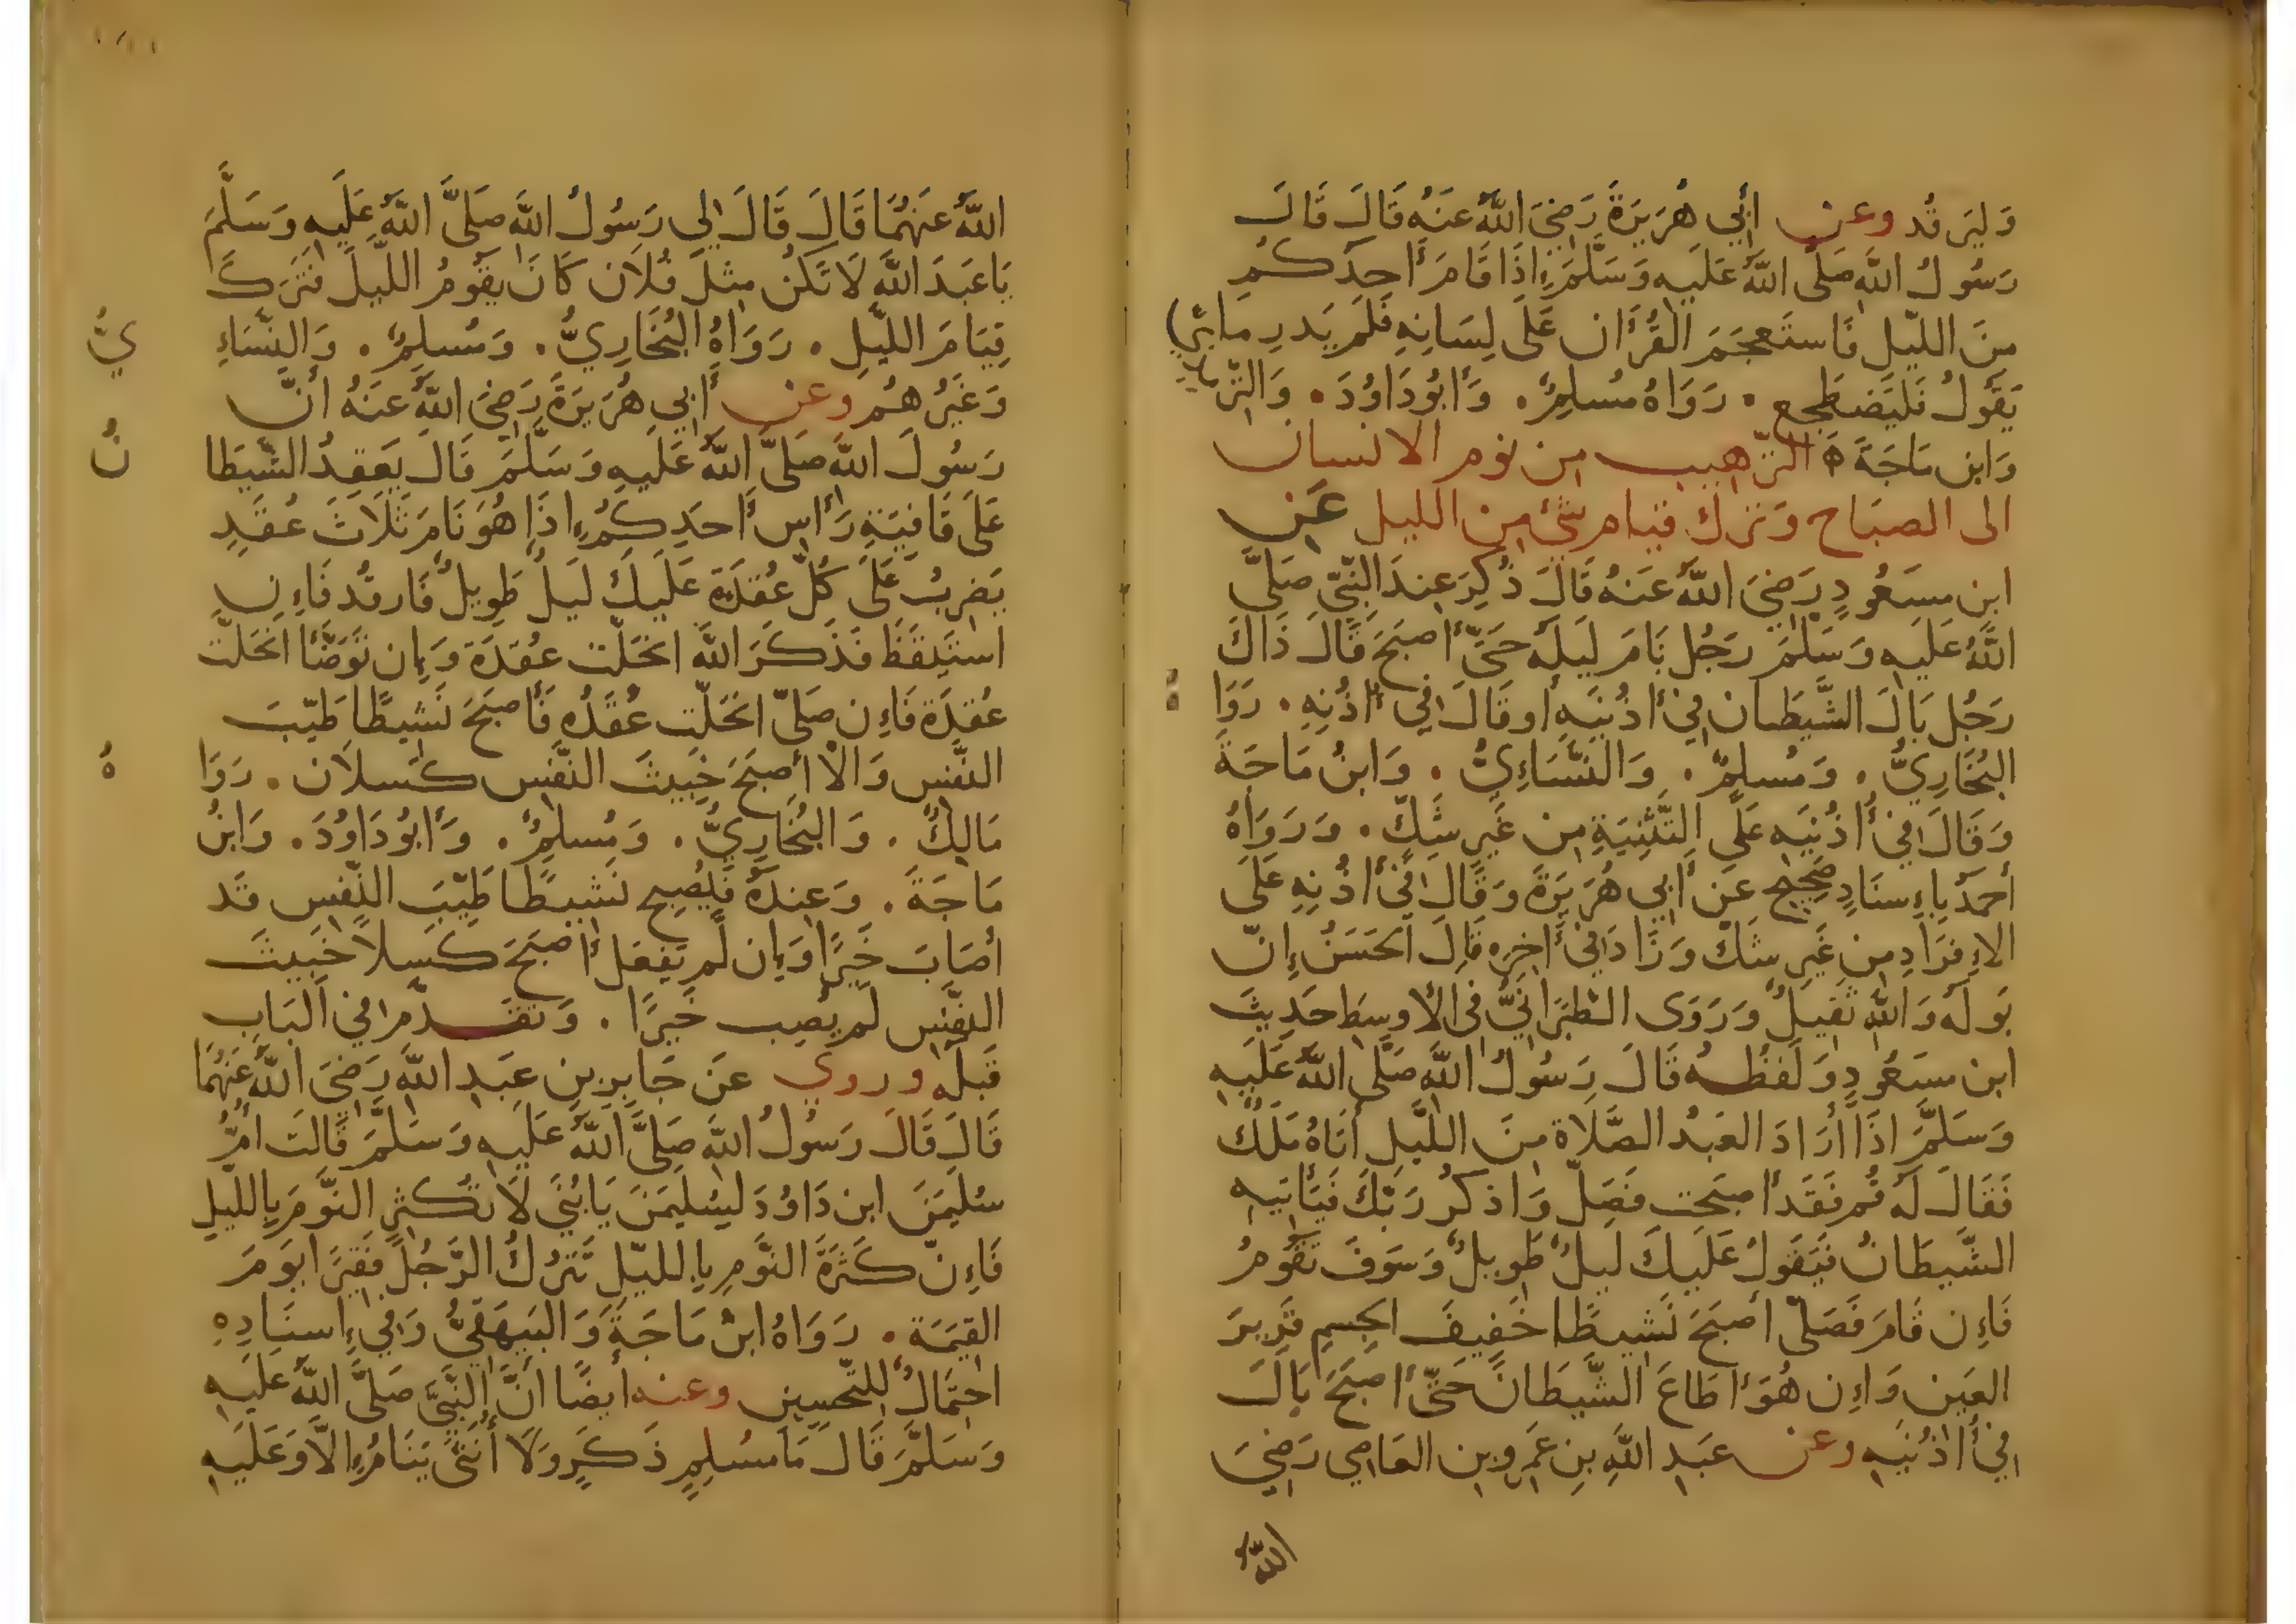 وَليَرقُد وعن أَبِي هُرَيرَةَ رَضِيَ اللَّهُ عَنهُ قَالَ قَالَ
رَسُولُ اللَّهِ صَلَّى اللَّهُ عَلَيهِ وَسَلَّمَ إِذَا قَامَ أَحَدُكُم
مِنَ اللَّيلِ فَاستَعجَمَ القُرأَان عَلَى لِسَانِهِ فَلَم يَدرِ مَا
يَقُولُ فَليَضطَجِع . رَوَاهُ مُسلِمٌ . وَأَبُودَاوُدَ . وَالتِّرمِذِي
وَابنُ مَاجَةَ ه التّرهيب من نوم الانسان
الى الصبَاح وَترك قيام شئ من الليل عَن
ابنِ مسعُودٍ رَضِيَ اللَّهُ عَنهُ قَالَ ذُكِرَ عِندَ النَّبِيِّ صَلَّى
اللَّهُ عَلَيهِ وَسَلَّمَ رَجُل نَامَ لَيلَهُ حَتَّى أَصبَحَ قَالَ ذَاكَ
رَجُل بَالَ الشَّيطَان فِي أُذُنَيهِ أَو قَالَ فِي أُذُنِهِ . رَوَا
البُخَارِيُّ . وَمُسلِمٌ . وَالنَّسَاءِيُّ . وَابنُ مَاجَةَ
وَقَالَ فِي أُذُنَيهِ عَلَى التَّثنِيَةِ مِن غَيرِ شَكٍّ . وَرَوَاهُ
أَحمَدُ بِإِسنَادٍ صَحِيحٍ عَن أَبِي هُرَيرَةَ وَقَالَ فِي أُذُنِهِ عَلَى
الإِفرَادِ مِن غَيرِ شَكّ وَزَادَ فِي أَاخِرِهِ قَالَ الحَسَنُ إِنَّ
بَولَهُ وَاللَّهِ ثَقِيلٌ وَرَوَى الطَّبَرَانِيُّ فِى الأَوسَطِ حَدِيثَ
ابن مسعُودٍ وَلَفظُهُ قَالَ رَسُولُ اللَّهِ صَلَّى اللَّهُ عَلَيهِ
وَسَلَّمَ اذَا أَرَادَ العَبدُ الصَّلَاةَ مِنَ اللَّيلِ أَتَاهُ مَلَكٌ
فَقَالَ لَهُ قُم فَقَد أَصبَحت فَصَلِّ وَاذكُر رَبَّكَ فَيَأتِيهِ
الشَّيطَانُ فَيَقُولُ عَلَيكَ لَيلٌ طَوِيلٌ وَسَوفَ تَقُومُ
فَإِن قَامَ فَصَلّى أَصبَحَ نَشِيطًا خَفِيفَ الجِسمِ قَرِيرَ
العَين وَإِن هُوَ أَطَاعَ الشَّيطَانَ حَتَّى أَصبَحَ بَالَ
فِي أُذُنَيهِ وعن عَبدِ اللَّهِ بنِ عَمرِو بنِ العَاصِي رَضِيَ
اللَّهُ
اللَّهُ عَنهُمَا قَالَ قَالَ لِي رَسُولُ اللَّهِ صَلَّى اللَّهُ عَلَيهِ وَسَلَّمَ
يَا عَبدَ اللَّهِ لَا تَكُن مِثلَ فُلَان كَانَ يَقُومُ اللَّيلَ فَتَرَكَ
قِيَامَ اللَّيلِ . رَوَاهُ البُخَارِيُّ . وَمُسلِمٌ . وَالنَّسَاءِ
يُّ
وَغَيرُهُم وعن أَبِي هُرَيرَةَ رَضِيَ اللَّهُ عَنهُ أَنَّ
رَسُولَ اللَّهِ صَلَّى اللَّهُ عَلَيهِ وَسَلَّمَ قَالَ يَعقِدُ الشَّيطَا
نُ
عَلَى قَافِيَةِ رَأسِ أَحَدِكُم إِذَا هُوَ نَامَ ثَلَاثَ عُقَدٍ
يَضرِبُ عَلَى كُلِّ عُقدَةٍ عَلَيكَ لَيلٌ طَوِيلٌ فَارقُد فَإِنِ
استَيقَظَ فَذَكَرَ اللَّهَ انحَلَّت عُقدَة وَإِن تَوَضَّأَ انحَلَّت
عُقدَة فَإِن صَلَّى انحَلَّت عُقَدُهُ فَأَصبَحَ نَشِيطًا طَيِّبَ
النَّفسِ وَالَّا أَصبَحَ خَبِيثَ النَّفسِ كَسلَان . رَوَا
هُ
مَالِكٌ . وَالبُخَارِيُّ . وَمُسلِمٌ . وَأَبُودَاوُدَ . وَابنُ
مَاجَةَ . وَعِندَهُ فَيُصبِح نَشِيطًا طَيِّبَ النَّفسِ قَد
أَصَابَ خَيرًا وَإِن لَم يَفعَل أَصبَحَ كَسِلًا خَبِيثَ
النَّفسِ لَم يُصِب خَيرًا . وَتَقَدَّمَ فِي البَابِ
قَبلَهُ وروي عَن جَابِرِ بنِ عَبدِ اللَّهِ رَضِيَ اللَّهُ عَنهُمَا
قَالَ قَالَ رَسُولُ اللَّهِ صَلَّى اللَّهُ عَلَيهِ وَسَلَّمَ قَالَت أُمُّ
سُلَيمَنَ ابن دَاوُدَ لِسُلَيمَنَ يَا بُنَيَّ لَا تُكثِرِ النَّومَ بِاللَّيلِ
فَإِنَّ كَثرَةَ النَّومِ بِاللَّيلِ تَترُكُ الرَّجُلَ فَقِيرًا يَومَ
القِيَمَة . رَوَاهُ ابنُ مَاجَةَ وَالبَيهَقِيُّ وَفِي إِسنَادِهِ
احتِمَالٌ لِلتَّحسِينِ وعنه أَيضًا أَنَّ النَّبِيَّ صَلَّى اللَّهُ عَلَيهِ
وَسَلَّمَ قَالَ مَا مُسلِمٍ ذَكَرٍ وَلَا أُنثَى يَنَامُ إِلَّا وَعَلَيهِ